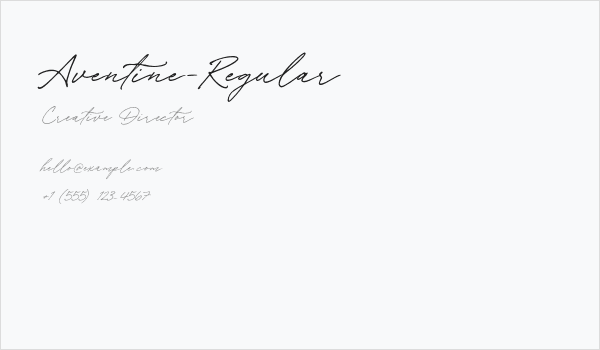 Aventine-Regular
Creative Director
hello@example.com
+1 (555) 123-4567